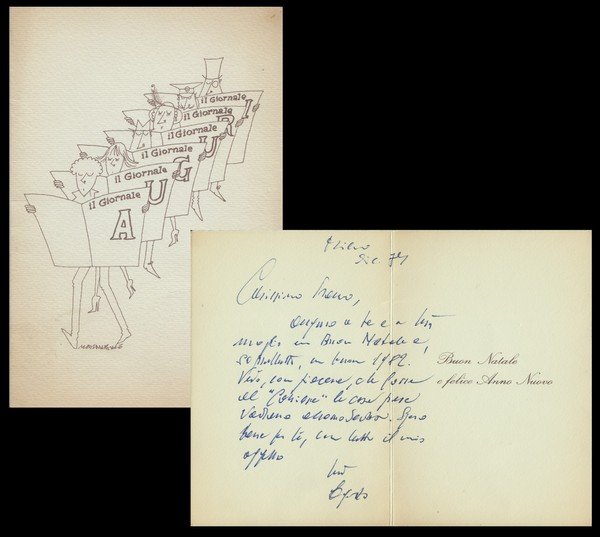 il Giornale
il Giornale
il Giornale
il Giornale
il Giornale
il Giornale
A U G U R I
Milano
Dic. 81
Carissimo
auguro a te e a tua
moglie un Buon Natale e,
soprattutto, un buon 1982.
Vedo, con piacere, che forse
al "Corriere" le cose
vadano assestandosi. Spero
bene per te, con tutto il mio
affetto
tuo
Buon Natale
e felice Anno Nuovo